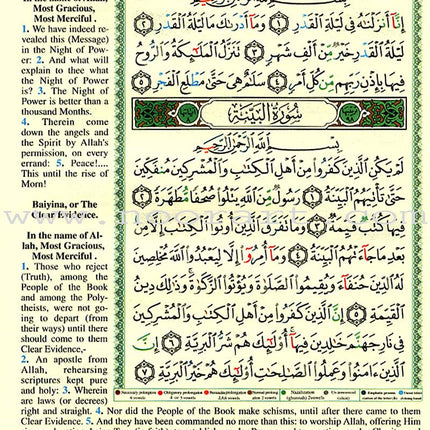 Most Gracious,
Most Merciful .
1. We have indeed re-
vealed this (Message)
in the Night of Pow-
er: 2. And what will
explain to thee what
the Night of Power
is? 3. The Night of
Power is better than a
thousand Months.
4. Therein come
down the angels and
the Spirit by Allah's
permission, on every
errand: 5. Peace!....
This until the rise of
Morn!
Baiyina, or The
Clear Evidence.
In the name of Al-
lah, Most Gracious,
Most Merciful .
1. Those who reject
(Truth), among the
People of the Book
and among the Poly-
theists, were not go-
ing to depart (from
their ways) until there
should come to them
Clear Evidence,-
2. An apostle from
Allah, rehearsing
scriptures kept pure
and holy: 3. Wherein
are laws (or decrees)
right and straight. 4. Nor did the People of the Book make schisms, until after there came to them
Clear Evidence. 5. And they have been commanded no more than this: to worship Allah, offering Him
إِنَّآ أَنزَلْنَٰهُ فِى لَيْلَةِ ٱلْقَدْرِ ١ وَمَآ أَدْرَىٰكَ مَا لَيْلَةُ ٱلْقَدْرِ ٢
لَيْلَةُ ٱلْقَدْرِ خَيْرٌ مِّنْ أَلْفِ شَهْرٍ ٣ تَنَزَّلُ ٱلْمَلَٰٓئِكَةُ وَٱلرُّوحُ
فِيهَا بِإِذْنِ رَبِّهِم مِّن كُلِّ أَمْرٍ ٤ سَلَٰمٌ هِىَ حَتَّىٰ مَطْلَعِ ٱلْفَجْرِ ٥
سُورَةُ ٱلْبَيِّنَةِ
بِسْمِ ٱللَّهِ ٱلرَّحْمَٰنِ ٱلرَّحِيمِ
لَمْ يَكُنِ ٱلَّذِينَ كَفَرُوا۟ مِنْ أَهْلِ ٱلْكِتَٰبِ وَٱلْمُشْرِكِينَ مُنفَكِّينَ
حَتَّىٰ تَأْتِيَهُمُ ٱلْبَيِّنَةُ ١ رَسُولٌ مِّنَ ٱللَّهِ يَتْلُوا۟ صُحُفًا مُّطَهَّرَةً ٢
فِيهَا كُتُبٌ قَيِّمَةٌ ٣ وَمَا تَفَرَّقَ ٱلَّذِينَ أُوتُوا۟ ٱلْكِتَٰبَ إِلَّا مِنۢ
بَعْدِ مَا جَآءَتْهُمُ ٱلْبَيِّنَةُ ٤ وَمَآ أُمِرُوٓا۟ إِلَّا لِيَعْبُدُوا۟ ٱللَّهَ مُخْلِصِينَ
لَهُ ٱلدِّينَ حُنَفَآءَ وَيُقِيمُوا۟ ٱلصَّلَوٰةَ وَيُؤْتُوا۟ ٱلزَّكَوٰةَ وَذَٰلِكَ دِينُ
ٱلْقَيِّمَةِ ٥ إِنَّ ٱلَّذِينَ كَفَرُوا۟ مِنْ أَهْلِ ٱلْكِتَٰبِ وَٱلْمُشْرِكِينَ
فِى نَارِ جَهَنَّمَ خَٰلِدِينَ فِيهَآ أُو۟لَٰٓئِكَ هُمْ شَرُّ ٱلْبَرِيَّةِ ٦ إِنَّ
ٱلَّذِينَ ءَامَنُوا۟ وَعَمِلُوا۟ ٱلصَّٰلِحَٰتِ أُو۟لَٰٓئِكَ هُمْ خَيْرُ ٱلْبَرِيَّةِ ٧